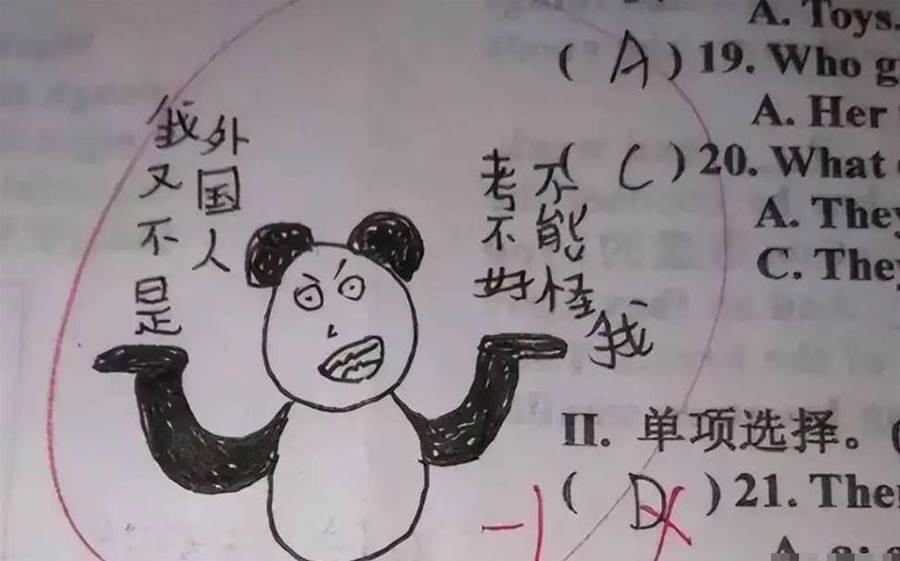 我又不是
外国人
考不好
不能怪我
A. Toys.
( A ) 19. Who g
A. Her
( C ) 20. What
A. They
C. They
II. 单项选择。(
( D ) 21. Ther
-1